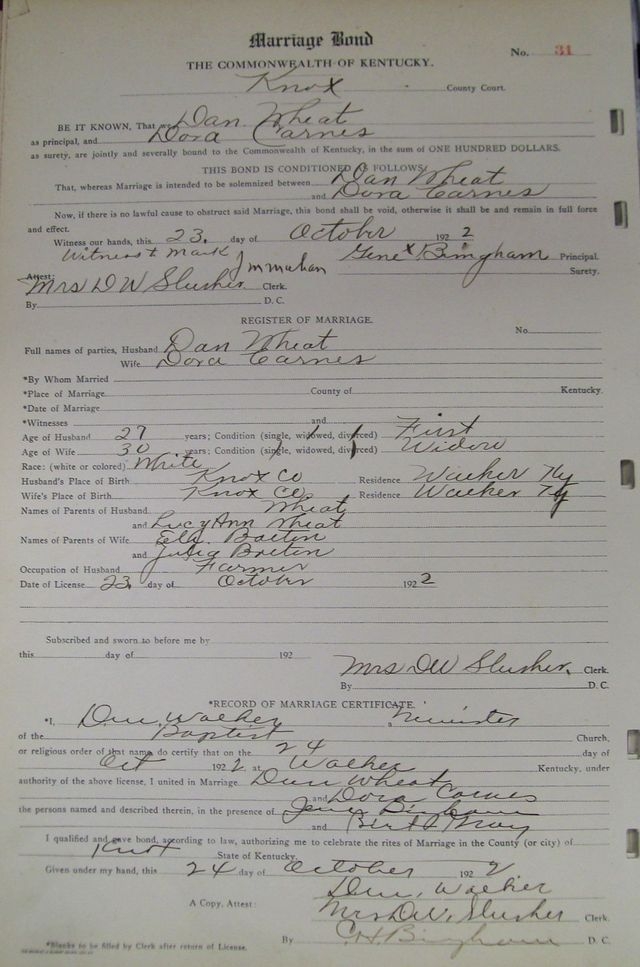 Marriage Bond
No. 31
THE COMMONWEALTH OF KENTUCKY.
Knox County Court.
BE IT KNOWN, That we Dan Wheat
as principal, and Dora Carnes
as surety, are jointly and severally bound to the Commonwealth of Kentucky, in the sum of ONE HUNDRED DOLLARS.
THIS BOND IS CONDITIONED AS FOLLOWS:
That, whereas Marriage is intended to be solemnized between Dan Wheat
and Dora Carnes
Now, if there is no lawful cause to obstruct said Marriage, this bond shall be void, otherwise it shall be and remain in full force
and effect.
Witness our hands, this 23. day of October 1922
Witness + Mark Gene x Bingham Principal.
Surety.
Attest:
Mrs D W Slusher Clerk.
By D. C.
REGISTER OF MARRIAGE.
No.
Full names of parties, Husband Dan Wheat
Wife Dora Carnes
*By Whom Married
*Place of Marriage County of Kentucky.
*Date of Marriage
*Witnesses and
Age of Husband 27 years; Condition (single, widowed, divorced) First
Age of Wife 30 years; Condition (single, widowed, divorced) Widow
Race: (white or colored) White
Husband's Place of Birth Knox Co Residence Walker Ky
Wife's Place of Birth Knox Co Residence Walker Ky
Names of Parents of Husband Wheat
and Lucy Ann Wheat
Names of Parents of Wife
and Julia
Occupation of Husband Farmer
Date of License 23. day of October 1922
Subscribed and sworn to before me by
this day of 192
Mrs DW Slusher. Clerk.
By D. C.
*RECORD OF MARRIAGE CERTIFICATE.
*I, Walker Minister
of the Baptist Church,
or religious order of that name, do certify that on the 24 day of
Oct 1922 at Walker Kentucky, under
authority of the above license, I united in Marriage Dan Wheat
and Dora Carnes
the persons named and described therein, in the presence of Bingham
and
I qualified and gave bond, according to law, authorizing me to celebrate the rites of Marriage in the County (or city) of
Knox State of Kentucky.
Given under my hand, this 24 day of October 1922
Walker
A Copy, Attest: Mrs DW. Slusher Clerk.
By C.H. Bingham D. C.
*Blanks to be filled by Clerk after return of License.